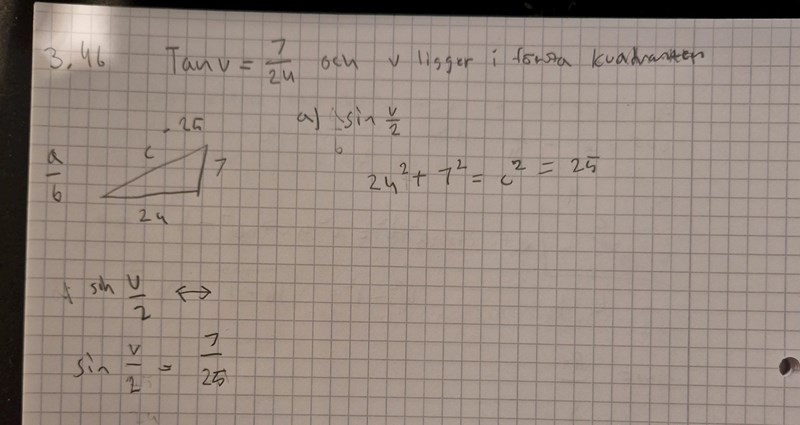 3.46 Tan v = 7/24 och v ligger i första kvadranten
a) sin v/2
25
c
7
a/b
24
24² + 7² = c² = 25
sin v/2 ↔
sin v/2 = 7/25